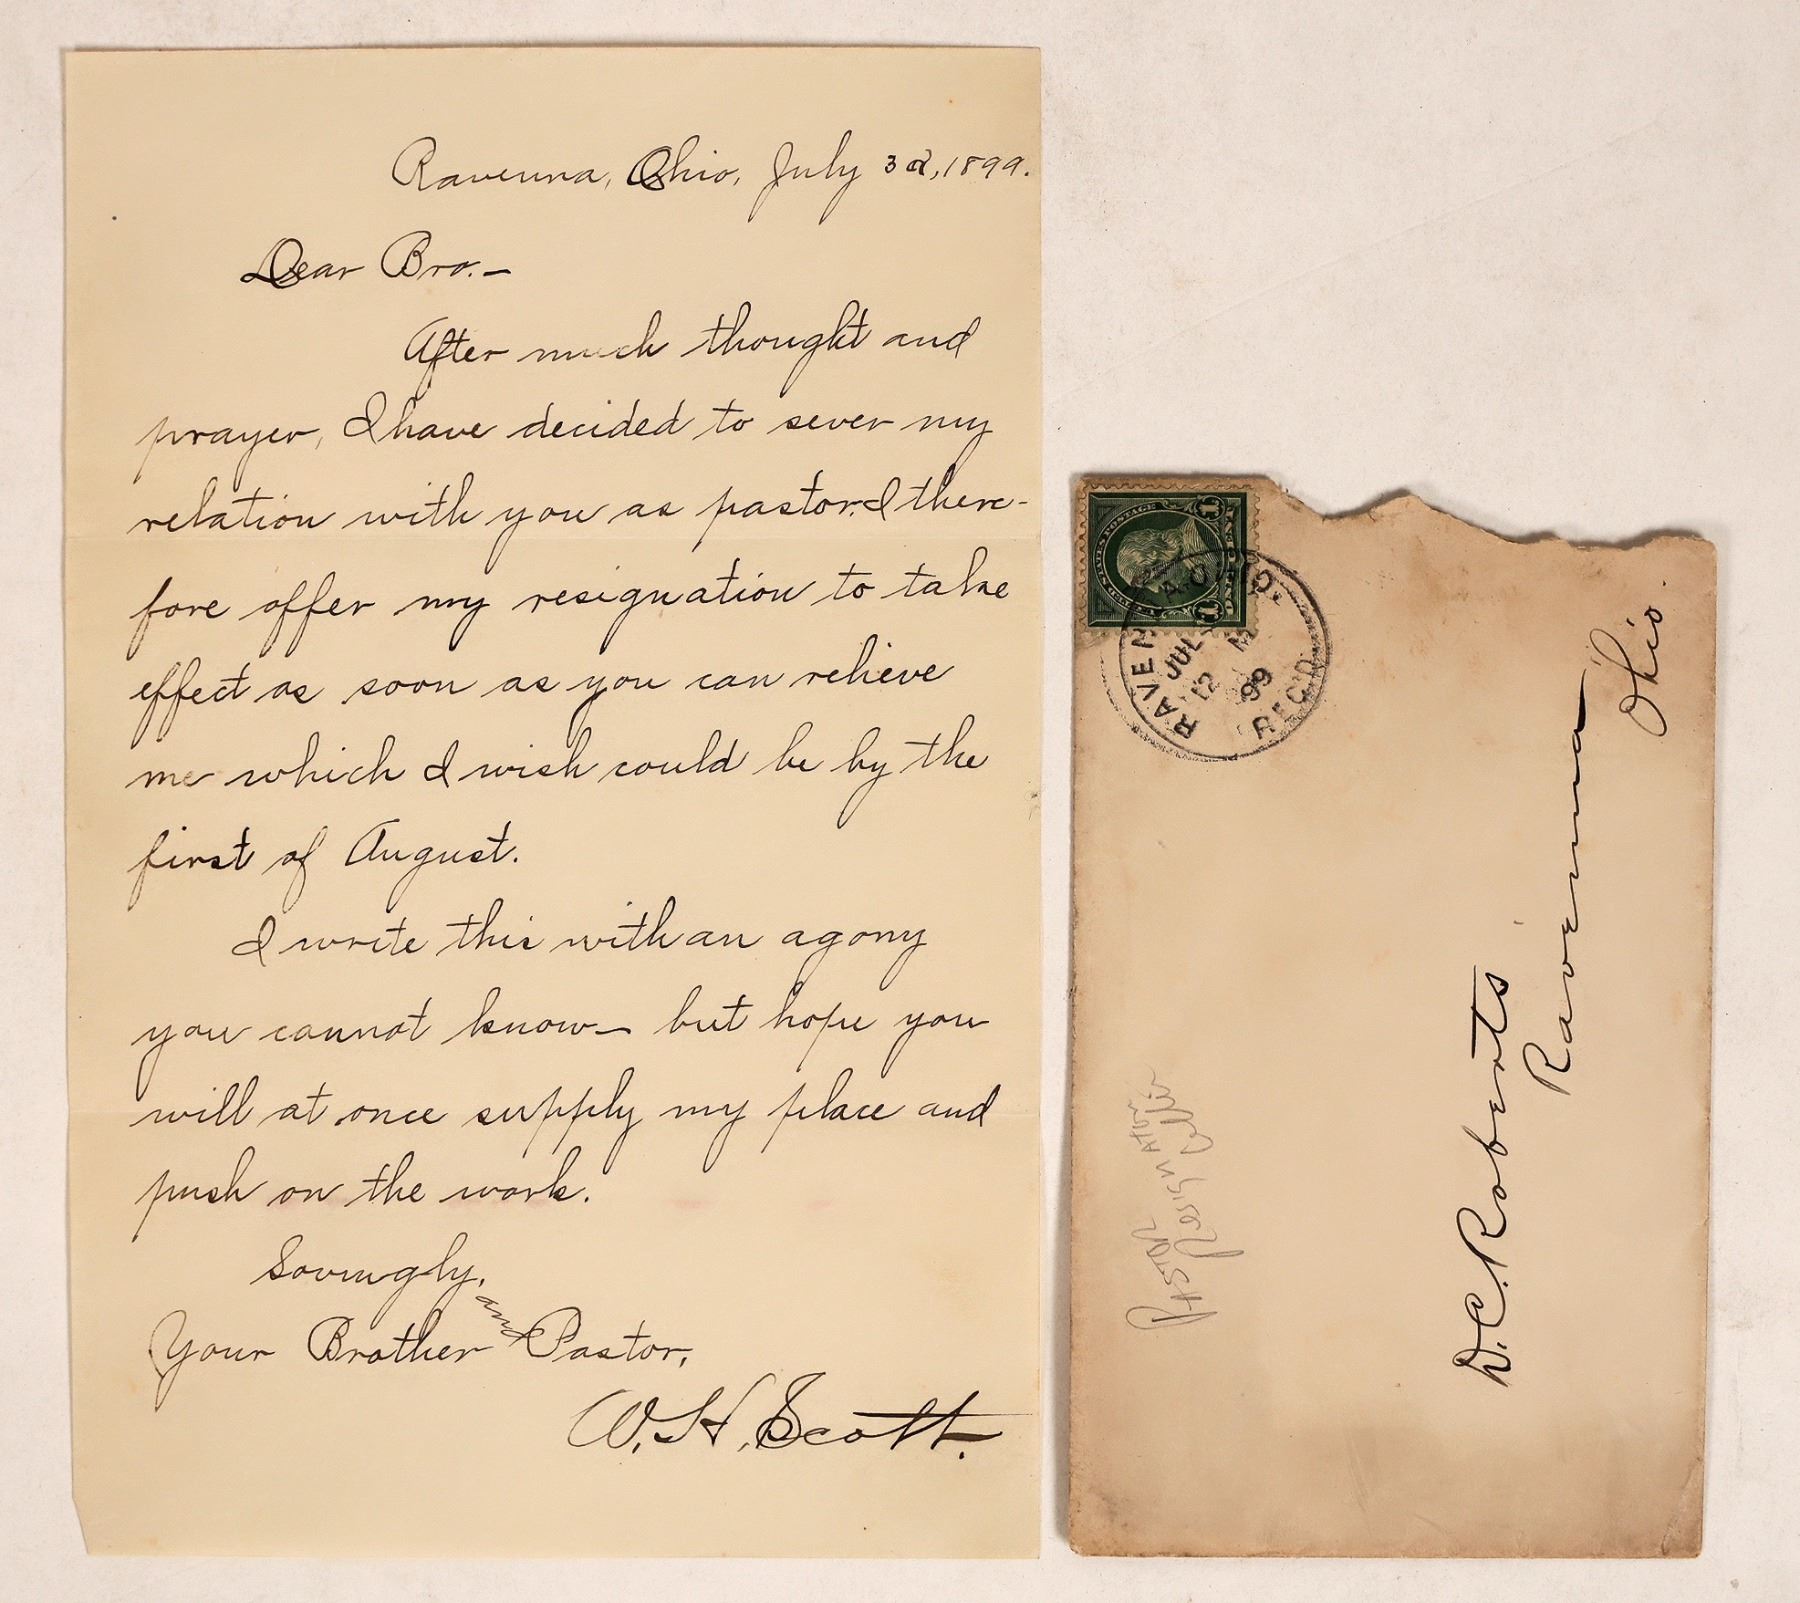 Ravenna, Ohio, July 3d, 1899.
Dear Bro.—
After much thought and
prayer, I have decided to sever my
relation with you as pastor. I there-
fore offer my resignation to take
effect as soon as you can relieve
me which I wish could be by the
first of August.
I write this with an agony
you cannot know — but hope you
will at once supply my place and
push on the work.
Lovingly,
Your Brother and Pastor,
W. H. Scott.
UNITED STATES POSTAGE
1 ONE CENT 1
RAVENNA, OHIO.
JUL
12 M
99
REC'D
D. C. Roberts
Ravenna
Ohio.
PASTOR
Resignation